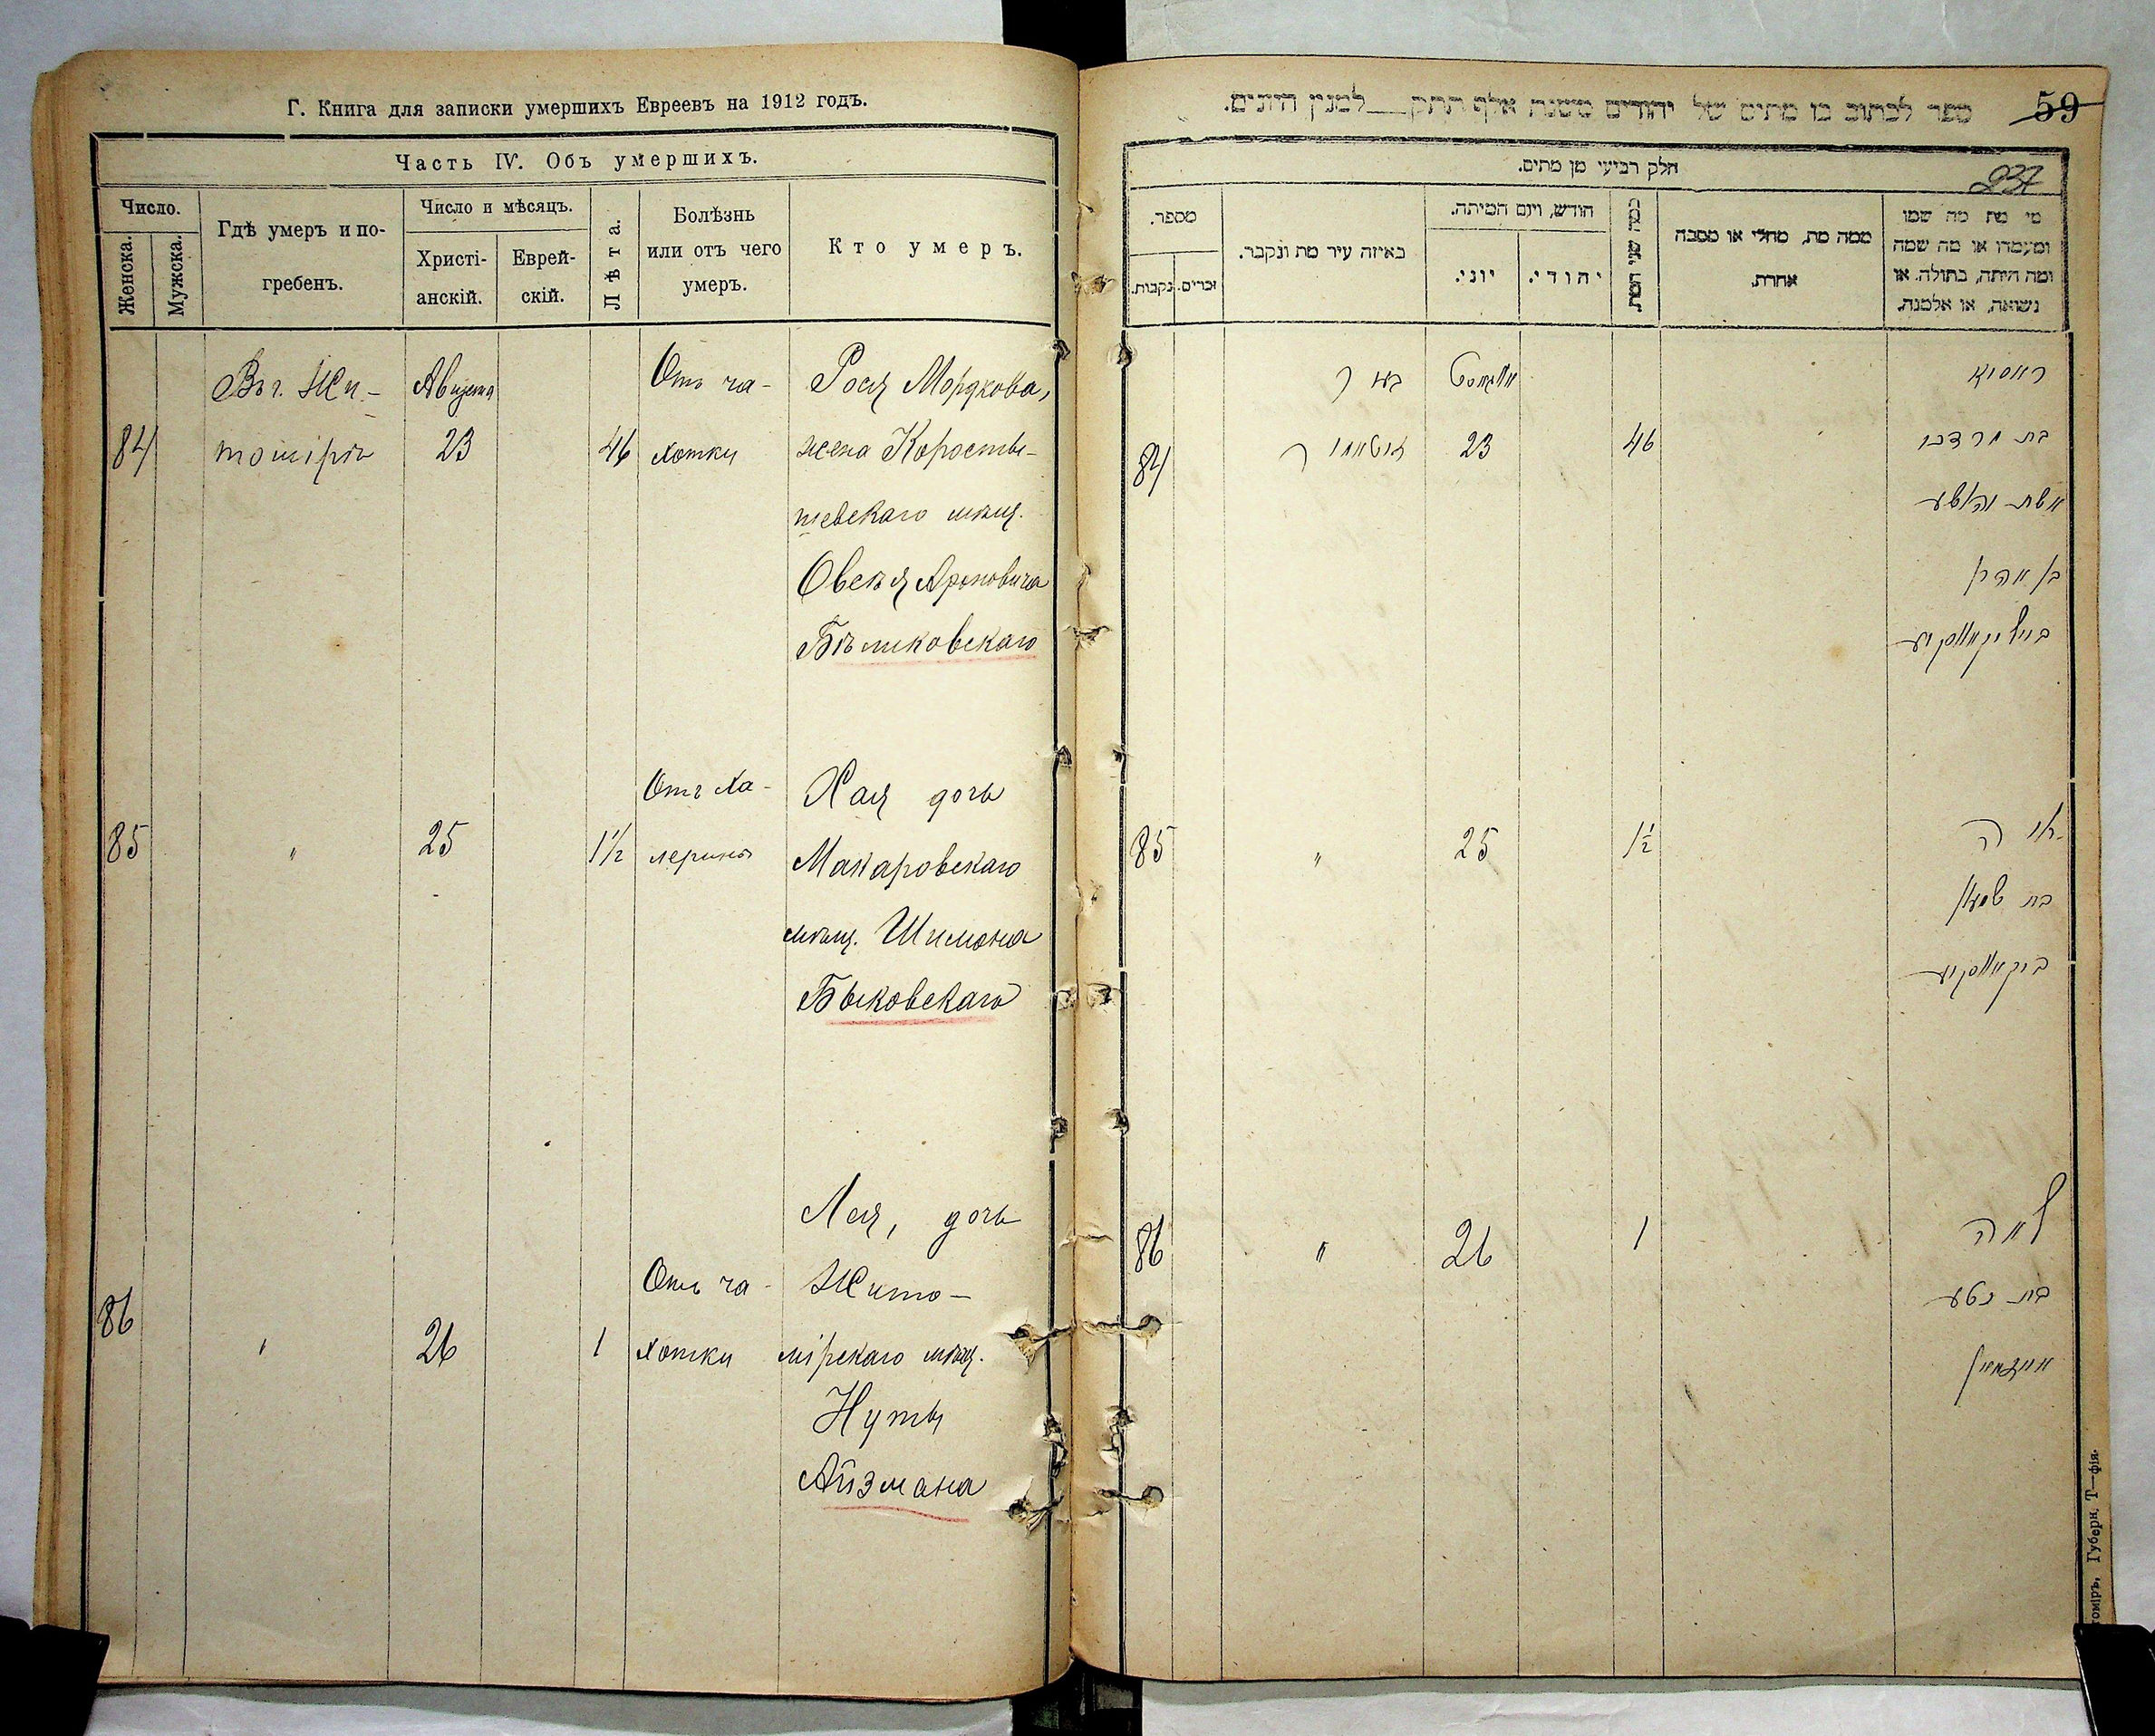 Г. Книга для записки умершихъ Евреевъ на 1912 годъ.
Часть IV. Объ умершихъ.
Число.
Женска.
Мужска.
Гдѣ умеръ и по-
гребенъ.
Число и мѣсяцъ.
Христі-
анскій.
Еврей-
скій.
Лѣта.
Болѣзнь
или отъ чего
умеръ.
Кто умеръ.
84
Въ г. Жи-
томірѣ
Августа
23
46
Отъ ча-
хотки
Рося Мордкова,
жена Коросты-
шевскаго мѣщ.
Овсея Ароновича
Бѣликовскаго
85
"
25
1½
Отъ ха-
лерины
Хая дочь
Макаровскаго
мѣщ. Шимона
Быковскаго
86
"
26
1
Отъ ча-
хотки
Лея, дочь
Жито-
мірскаго мѣщ.
Нуты
Айзмана
ספר לכתוב בו מתים של יהודים משנת אלף תתק__למנין היונים.
59
237
חלק רביעי מן מתים.
מספר.
נקבות.
זכרים.
באיזה עיר מת ונקבר.
חודש, ויום המיתה.
יוני.
יהודי.
כמה שני המת.
ממה מת, מחלי או מסבה
אחרת.
מי מת מה שמו
ומעמדו או מה שמה
ומה היתה, בתולה. או
נשואה, או אלמנה.
84
אויגוסט
23
46
בת מרדכי
אשת הושע
בן אהרן
ביליקאווסקיע
85
"
25
1½
חיה
בת שמעון
ביקאווסקיע
86
"
26
1
לאה
בת נטע
אייזמאן
Губерн. Т—фія.